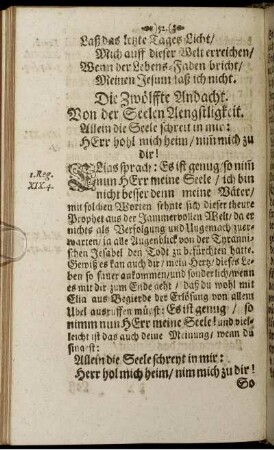 52.
Laß das letzte Tages Licht/
Mich auff dieser Welt erreichen/
Wenn der Lebens-Faden bricht/
Meinen Jesum laß ich nicht.
Die Zwölffte Andacht.
Von der Seelen Aengstligkeit.
Allein die Seele schreit in mir:
HErr hohl mich heim/ nim mich zu
dir!
1. Reg.
XIX 4.
ELias sprach: Es ist genug/ so nim
nun HErr meine Seele/ ich bin
nicht besser denn meine Väter/
mit solchen Worten sehnte sich dieser theure
Prophet aus der Jammervollen Welt/ da er
nichts als Verfolgung und Ungemach zuer-
warten/ ja alle Augenblick von der Tyranni-
schen Jesabel den Todt zu befürchten hatte.
Gewiß es kan auch dir/ mein Hertz/ dieses Le-
ben so sauer ankommen/und sonderlich/wenn
es mit dir zum Ende geht/ daß du wohl mit
Elia aus Begierde der Erlösung von allem
Ubel ausruffen müst: Es ist genug/ so
nimm nun HErr meine Seele! und viel-
leicht ist das auch deine Meinung/ wenn du
singest:
Allein die Seele schreyt in mir:
Herr hol mich heim/ nim mich zu dir!
So